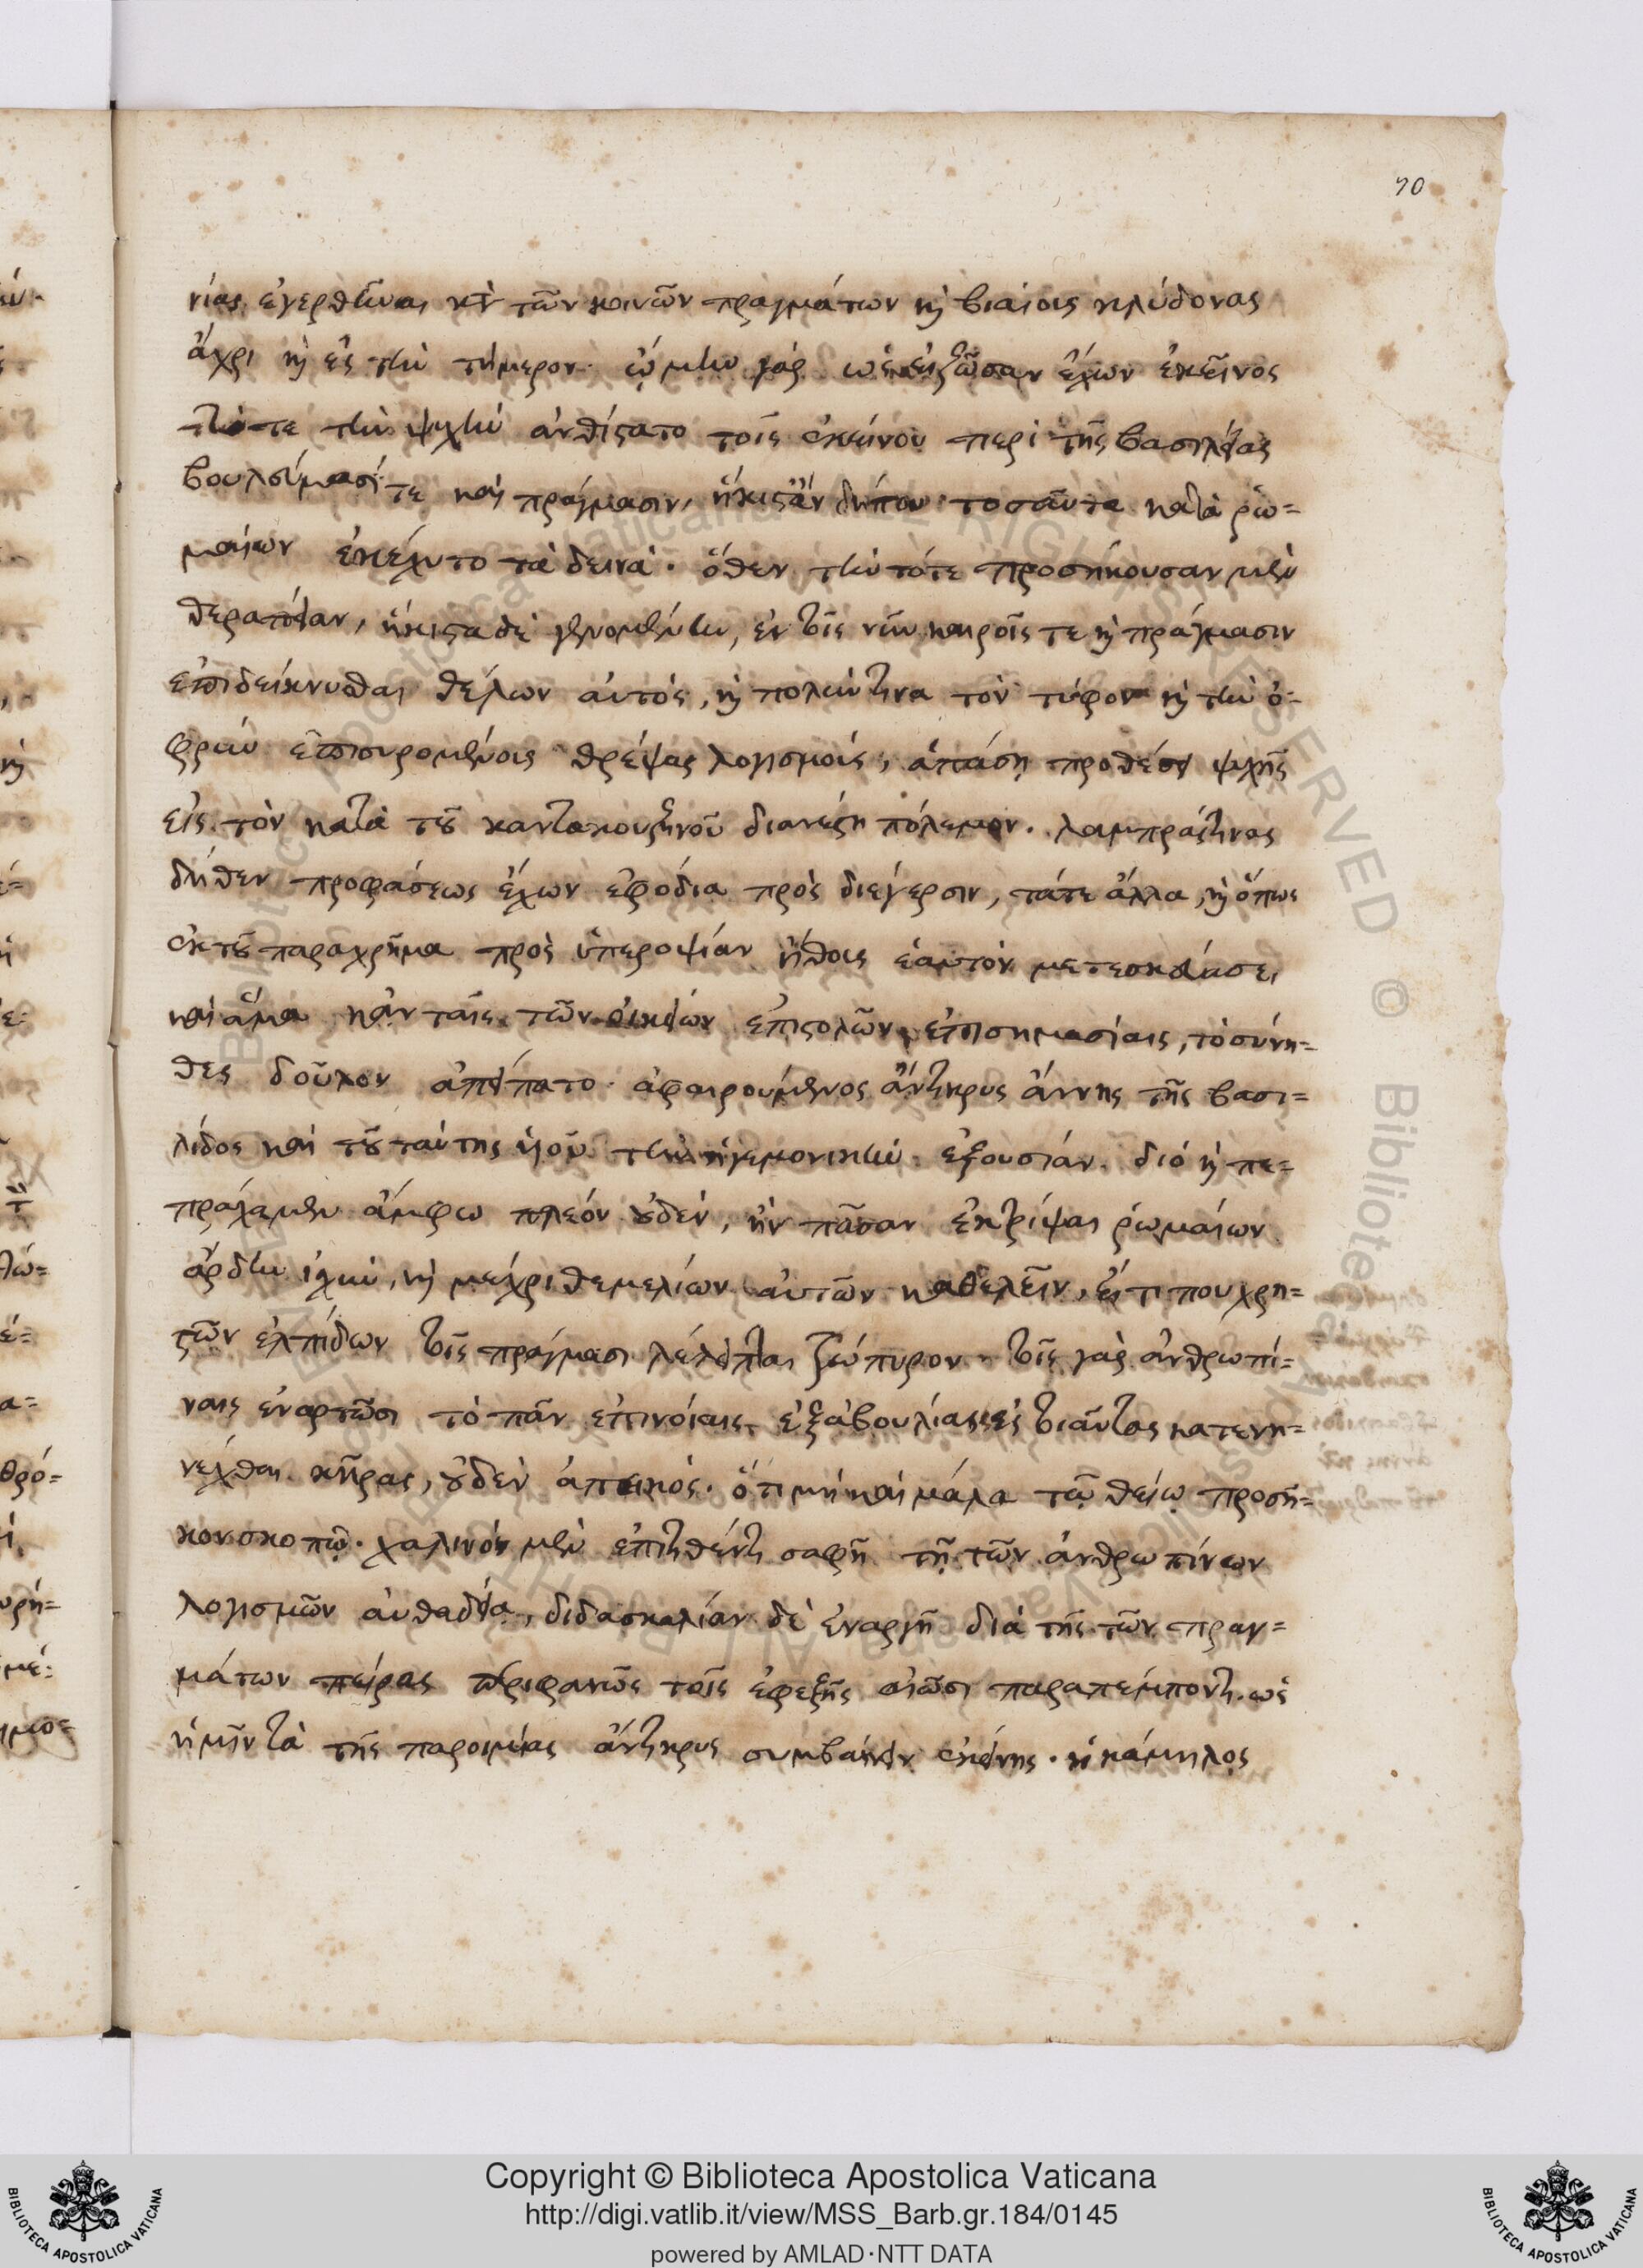 70
νίας ἐγερθῆναι κτ τῶν κοινῶν πραγμάτων κỳ βιαίοις κλύδονας
ἄχρι κỳ ἐς τὴν τήμερον. εἰ μὴν γὰρ ὡς ἔχων ἐκεῖνος
τήν τε τὴν ψυχὴν ἀνθίστατο τοῖς ἐκείνου περὶ τῆς βασιλείας
βουλεύμασί τε καὶ πράγμασιν, ἥκιστ' ἂν δήπου τοσαῦτα κατὰ ῥω=
μαίων ἐκέχυτο τὰ δεινά. ὅθεν τὴν τότε προσήκουσαν μὲν
θεραπείαν, ἥκιστα δὲ γενομένην, ἐν τοῖς νῦν καιροῖς τε κỳ πράγμασιν
ἐπιδείκνυσθαι θέλων αὐτός, κỳ πολύν τινα τὸν τύφον κỳ τὴν ὀ=
φρὺν ἐπισυρομένοις θρέψας λογισμοῖς, ἁπάσῃ προθέσει ψυχῆς
εἰς τὸν κατὰ τοῦ καντακουζηνοῦ διανέστη πόλεμον. λαμπρᾶς τινας
δῆθεν προφάσεως ἔχων ἐφόδια πρὸς διέγερσιν, τά τε ἄλλα, κỳ ὅπως
ἐκ τοῦ παραχρῆμα πρὸς ὑπεροψίαν ἤθους ἑαυτὸν μετεσκεύασε,
καὶ ἅμα κἀν ταῖς τῶν οἰκείων ἐπιστολῶν ἐπισημασίαις, τὸ σύνη=
θες δοῦλον ἀπείπατο. ἀφαιρούμενος ἄντικρυς ἄννης τῆς βασι=
λίδος καὶ τοῦ ταύτης υἱοῦ τὴν ἡγεμονικὴν ἐξουσίαν. διὸ κỳ πε=
πράχαμεν ἄμφω πλέον οὐδὲν, ἢν πᾶσαν ἐκτρίψαι ῥωμαίων
ἄρδην ἰσχὺν, κỳ μέχρι θεμελίων αὐτῶν καθελεῖν, εἴ τι που χρη=
στῶν ἐλπίδων τοῖς πράγμασι λέλειπται ζώπυρον. τοῖς γὰρ ἀνθρωπί=
ναις ἐναρτῶσι τὸ πᾶν ἐπινοίαις, ἐξ ἀβουλίας ἐς τοιαύτας κατενη=
νέχθαι κῆρας, οὐδὲν ἀπεικός. ὅτι μὴ καὶ μάλα τῷ θείῳ προσῆ=
κον σκοπῷ. χαλινὸν μὲν ἐπιτιθέντι σαφῆ τῇ τῶν ἀνθρωπίνων
λογισμῶν αὐθαδείᾳ, διδασκαλίαν δὲ ἐναργῆ διὰ τῆς τῶν πραγ=
μάτων πείρας περιφανῶς τοῖς ἐφεξῆς αἰῶσι παραπέμποντι. ὡς
ἡμῖν τὰ τῆς παροιμίας ἄντικρυς συμβαίνειν ἐκείνης. ἡ κάμηλος
Copyright © Biblioteca Apostolica Vaticana
http://digi.vatlib.it/view/MSS_Barb.gr.184/0145
powered by AMLAD·NTT DATA
BIBLIOTECA APOSTOLICA VATICANA
BIBLIOTECA APOSTOLICA VATICANA